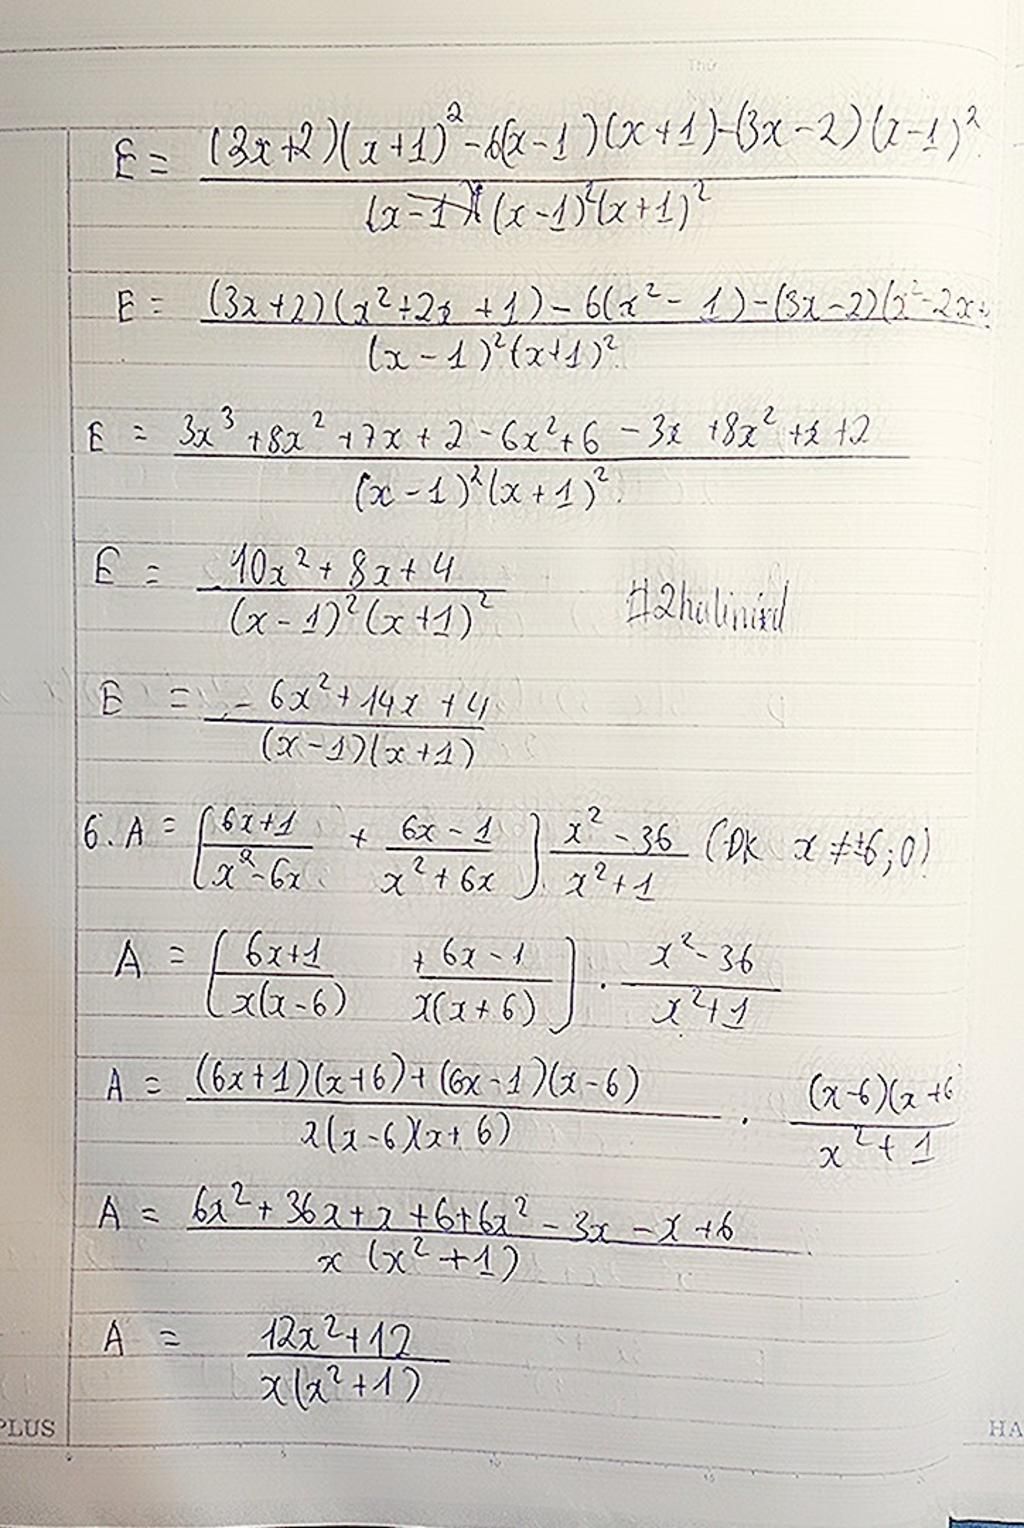 Thứ
E = (3x+2)(x+1)² - 6(x-1)(x+1)-(3x-2)(x-1)² / (x-1)²(x+1)²
E = (3x+2)(x²+2x+1) - 6(x²-1) - (3x-2)(x²-2x+ / (x-1)²(x+1)²
E = 3x³+8x²+7x+2-6x²+6-3x+8x²+x+2 / (x-1)²(x+1)²
E = 10x²+8x+4 / (x-1)²(x+1)²
E = -6x²+14x+4 / (x-1)(x+1)
6. A = [6x+1 / x²-6x + 6x-1 / x²+6x] . x²-36 / x²+1 (ĐK x ≠ ±6;0)
A = [6x+1 / x(x-6) + 6x-1 / x(x+6)] . x²-36 / x²+1
A = (6x+1)(x+6)+(6x-1)(x-6) / x(x-6)(x+6) . (x-6)(x+6 / x²+1
A = 6x²+36x+x+6+6x²-3x-x+6 / x(x²+1)
A = 12x²+12 / x(x²+1)
PLUS
HA